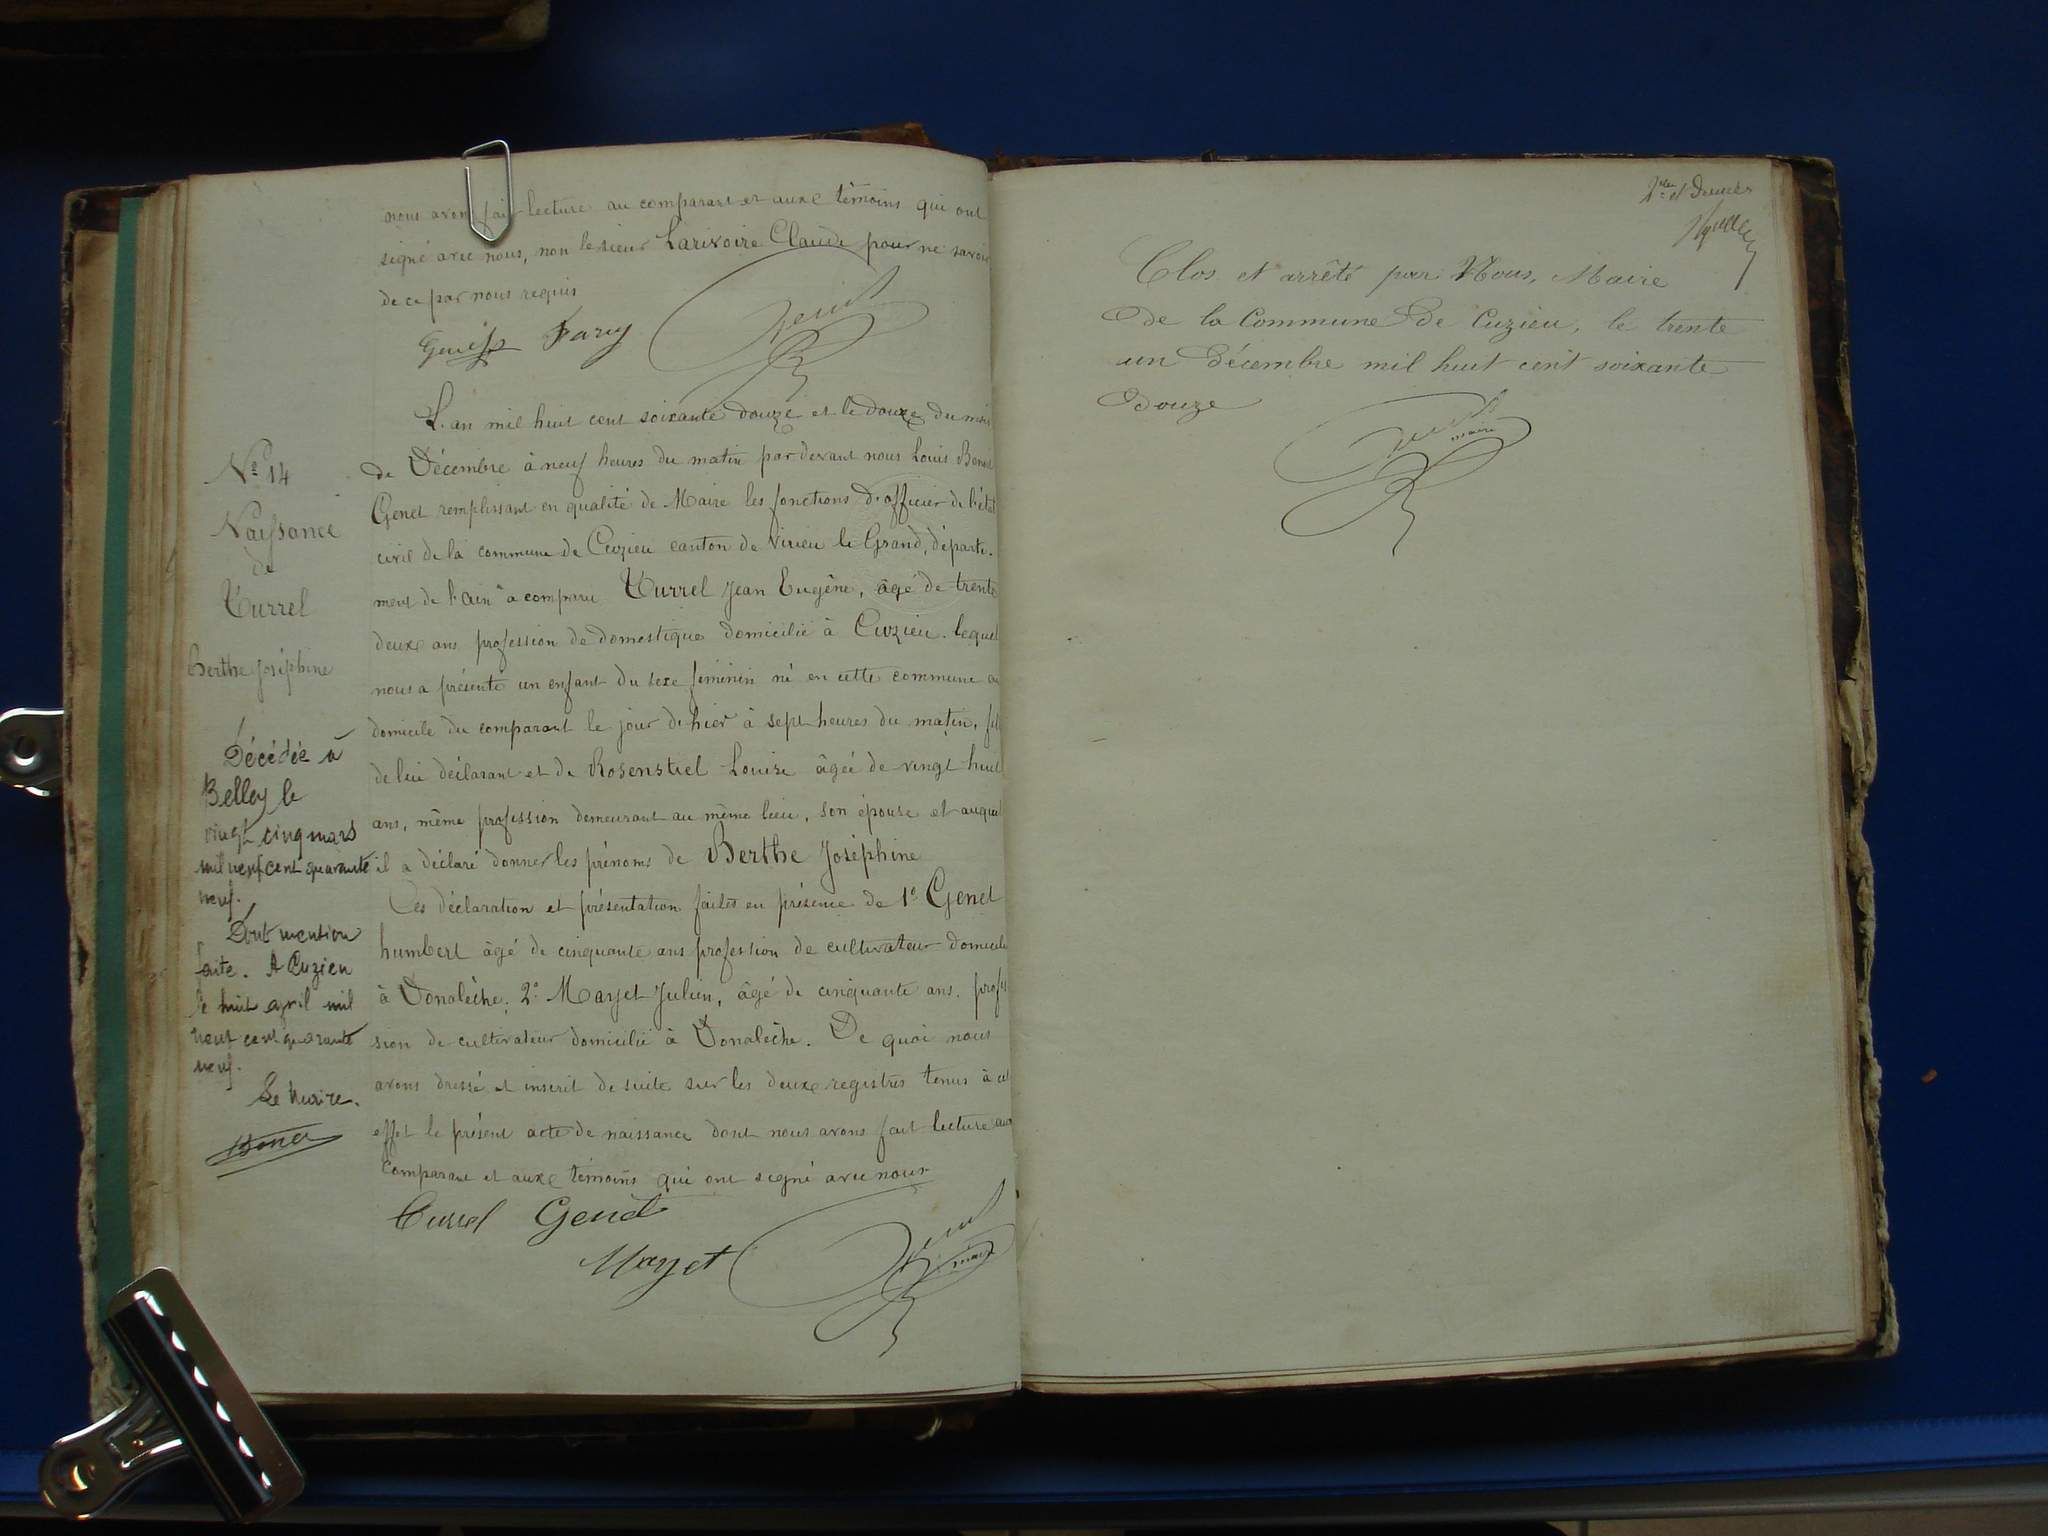 nous avons fait lecture au comparant et aux témoins qui ont
signé avec nous, non le sieur Larivoire Claude pour ne savoir
de ce par nous requis
Fary
L'an mil huit cent soixante douze et le douze du mois
de Décembre à neuf heures du matin par devant nous Louis Benoit
Genet remplissant en qualité de Maire les fonctions d'officier de l'état
civil de la commune de Cuzieu canton de Virieu le Grand, départe-
ment de l'Ain a comparu Turrel Jean Eugène, âgé de trente
deux ans profession de domestique domicilié à Cuzieu. lequel
nous a présenté un enfant du sexe féminin né en cette commune au
domicile du comparant le jour d'hier à sept heures du matin, fil
de lui déclarant et de Rosenstiel Louise âgée de vingt huit
ans, même profession demeurant au même lieu, son épouse et auquel
il a déclaré donner les prénoms de Berthe Joséphine
Ces déclaration et présentation faites en présence de 1° Genet
humbert âgé de cinquante ans profession de cultivateur domicilié
à Vonalèche. 2° Mayet Julien, âgé de cinquante ans. profes
sion de cultivateur domicilié à Vonalèche. De quoi nous
avons dressé et inscrit de suite sur les deux registres tenus à cet
effet le présent acte de naissance dont nous avons fait lecture au
comparant et aux témoins qui ont signé avec nous
Turrel Genet
Mayet
Genet maire
N° 14
Naissance
de
Turrel
Berthe Joséphine
Décédée à
Belley le
vingt cinq mars
mil neuf cent quarante
neuf.
Dont mention
faite. A Cuzieu
le huit avril mil
neuf cent quarante
neuf.
Le Maire.
Clos et arrêté par Nous, Maire
de la Commune de Cuzieu, le trente
un décembre mil huit cent soixante
douze
Genet maire